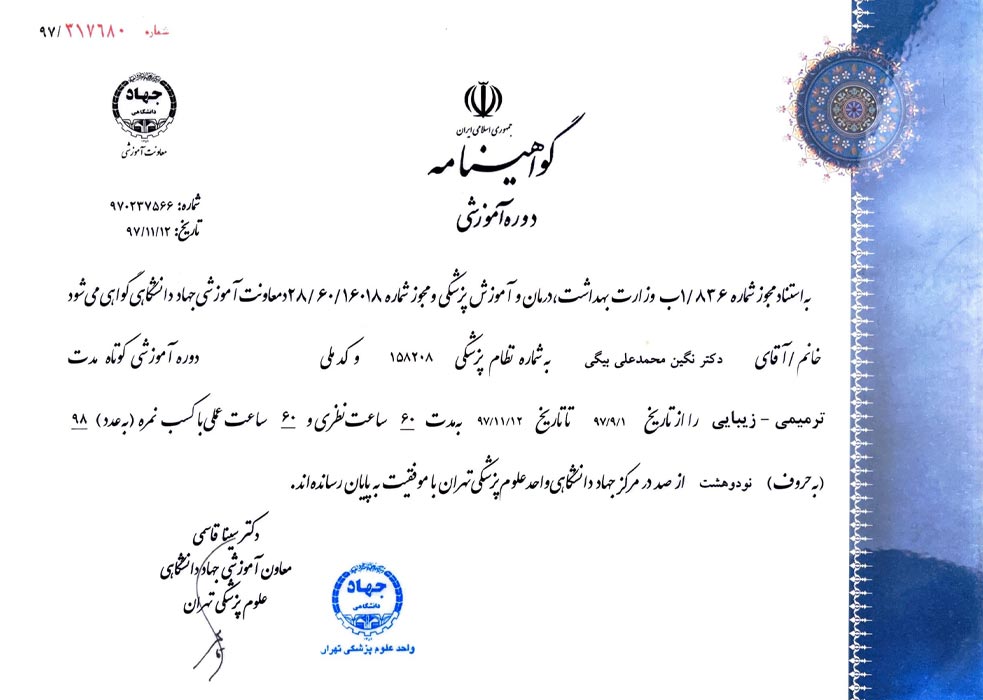 شماره ۹۷/۳۱۷۶۸۰
جهاد
دانشگاهی
معاونت آموزشی
جمهوری اسلامی ایران
گواهینامه
دوره آموزشی
شماره: ۹۷۰۲۳۷۵۶۶
تاریخ: ۹۷/۱۱/۱۲
به استناد مجوز شماره ۱/۸۳۶ب وزارت بهداشت، درمان و آموزش پزشکی و مجوز شماره ۲۸/۶۰/۱۶۰۱۸د معاونت آموزشی جهاد دانشگاهی گواهی می‌شود
خانم / آقای دکتر نگین محمدعلی بیگی به شماره نظام پزشکی ۱۵۸۲۰۸ و کد ملی دوره آموزشی کوتاه مدت
ترمیمی - زیبایی را از تاریخ ۹۷/۹/۱ تا تاریخ ۹۷/۱۱/۱۲ به مدت ۶۰ ساعت نظری و ۶۰ ساعت عملی با کسب نمره (به عدد) ۹۸
(به حروف) نودوهشت از صد در مرکز جهاد دانشگاهی واحد علوم پزشکی تهران با موفقیت به پایان رسانده‌اند.
دکتر سینا قاسمی
معاون آموزشی جهاد دانشگاهی
علوم پزشکی تهران
جهاد
دانشگاهی
واحد علوم پزشکی تهران